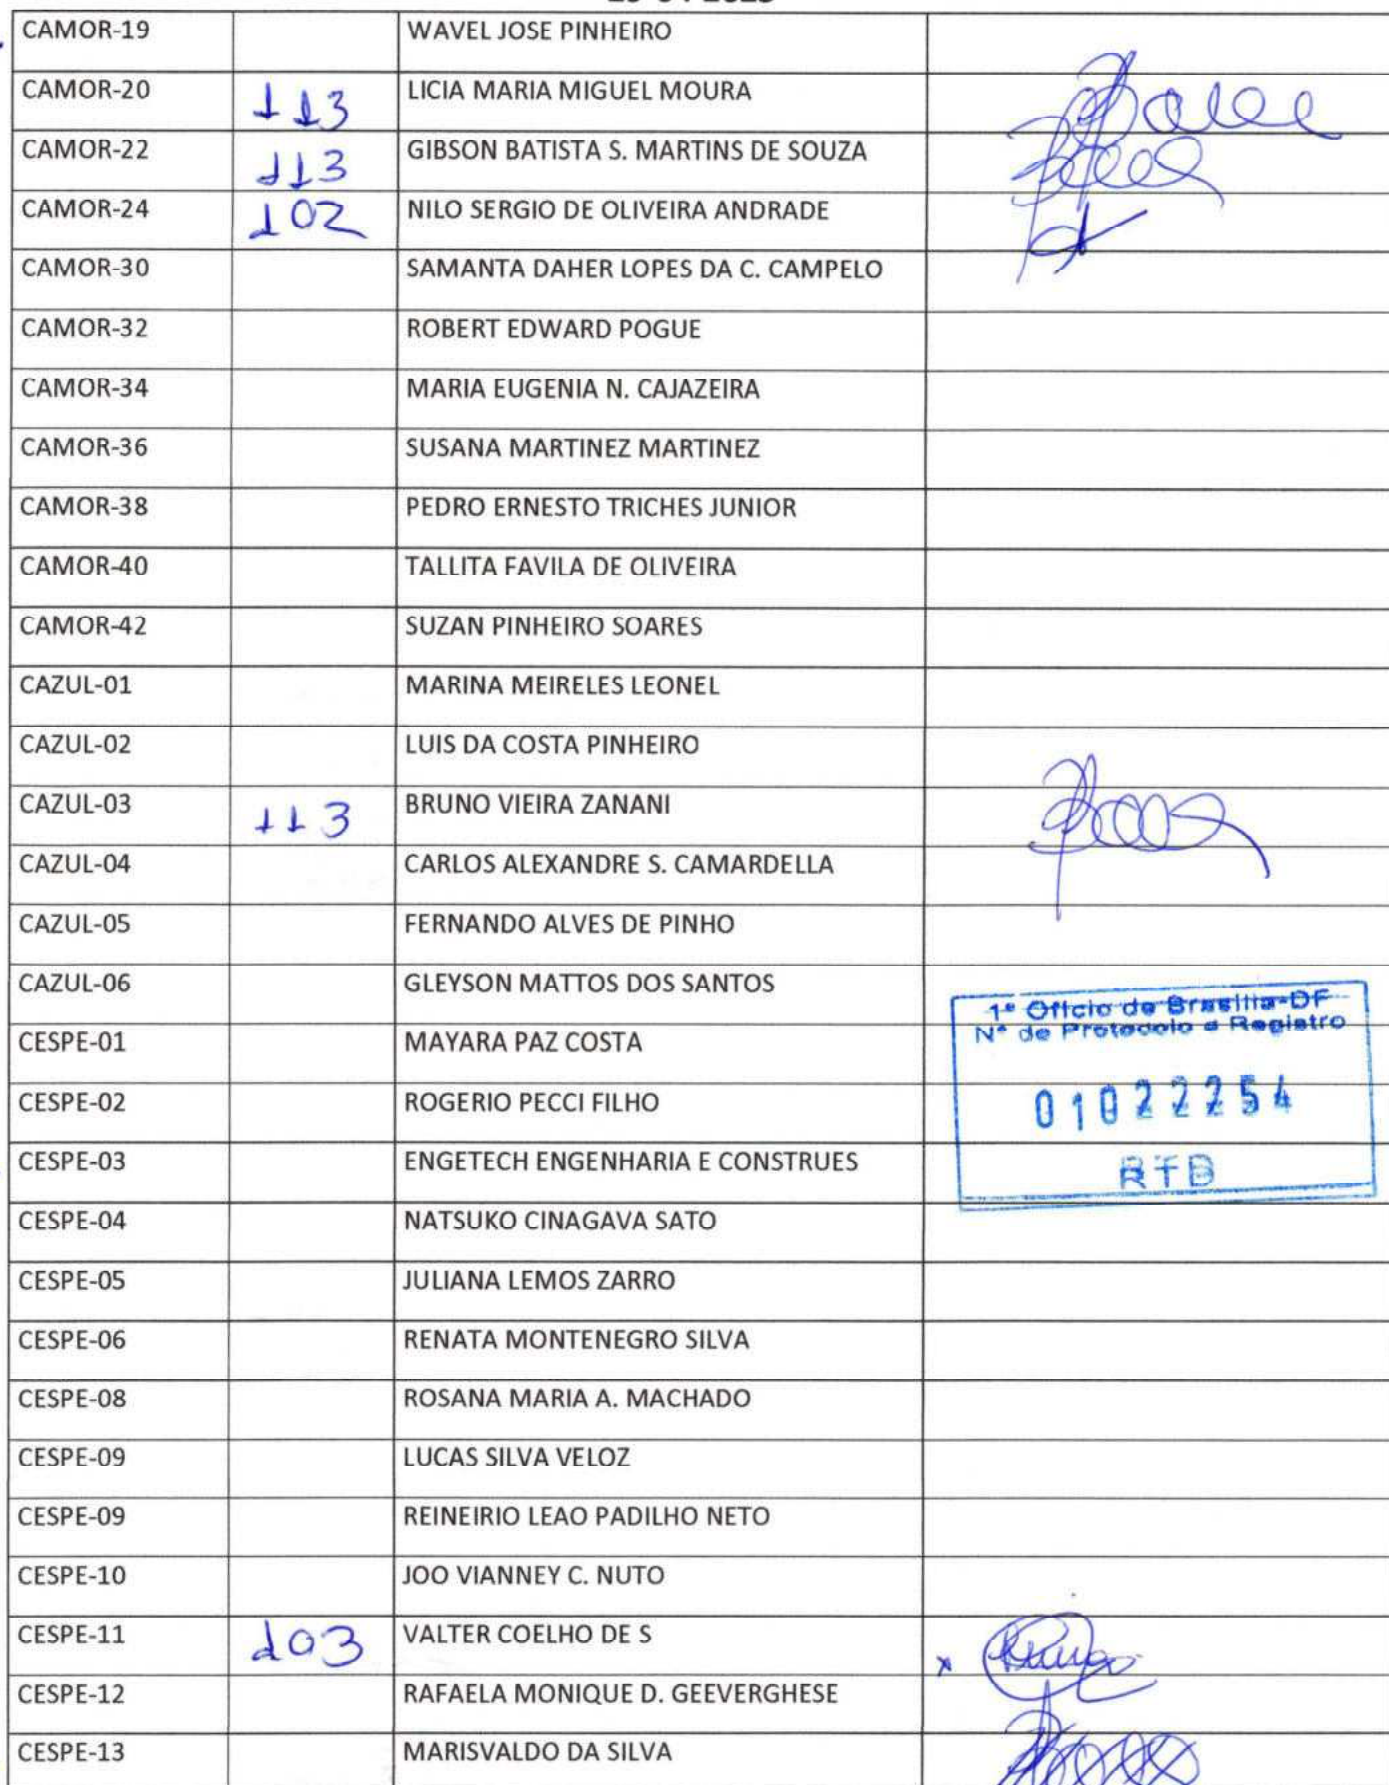 CAMOR-19 WAVEL JOSE PINHEIRO
CAMOR-20 113 LICIA MARIA MIGUEL MOURA
CAMOR-22 113 GIBSON BATISTA S. MARTINS DE SOUZA
CAMOR-24 102 NILO SERGIO DE OLIVEIRA ANDRADE
CAMOR-30 SAMANTA DAHER LOPES DA C. CAMPELO
CAMOR-32 ROBERT EDWARD POGUE
CAMOR-34 MARIA EUGENIA N. CAJAZEIRA
CAMOR-36 SUSANA MARTINEZ MARTINEZ
CAMOR-38 PEDRO ERNESTO TRICHES JUNIOR
CAMOR-40 TALLITA FAVILA DE OLIVEIRA
CAMOR-42 SUZAN PINHEIRO SOARES
CAZUL-01 MARINA MEIRELES LEONEL
CAZUL-02 LUIS DA COSTA PINHEIRO
CAZUL-03 113 BRUNO VIEIRA ZANANI
CAZUL-04 CARLOS ALEXANDRE S. CAMARDELLA
CAZUL-05 FERNANDO ALVES DE PINHO
CAZUL-06 GLEYSON MATTOS DOS SANTOS
1º Oficio de Brasília-DF
Nº de Protocolo e Registro
CESPE-01 MAYARA PAZ COSTA
CESPE-02 ROGERIO PECCI FILHO
01022254
CESPE-03 ENGETECH ENGENHARIA E CONSTRUES
RTD
CESPE-04 NATSUKO CINAGAVA SATO
CESPE-05 JULIANA LEMOS ZARRO
CESPE-06 RENATA MONTENEGRO SILVA
CESPE-08 ROSANA MARIA A. MACHADO
CESPE-09 LUCAS SILVA VELOZ
CESPE-09 REINEIRIO LEAO PADILHO NETO
CESPE-10 JOO VIANNEY C. NUTO
CESPE-11 103 VALTER COELHO DE S
CESPE-12 RAFAELA MONIQUE D. GEEVERGHESE
CESPE-13 MARISVALDO DA SILVA